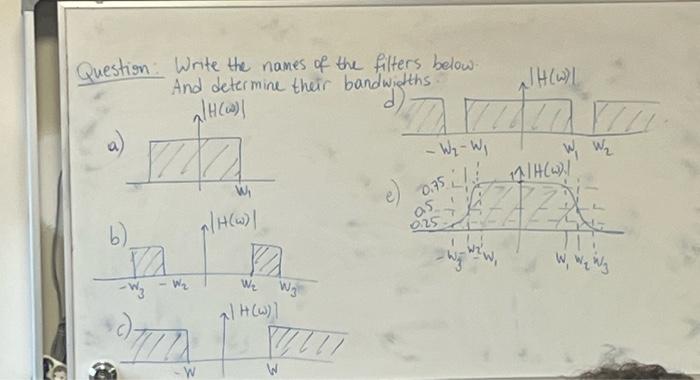 Question: Write the names of the filters below.
And determine their bandwidths.
a)
|H(w)|
W₁
b)
|H(w)|
-W₃ -W₂ W₂ W₃
c)
|H(w)|
-W W
d)
|H(w)|
-W₂ -W₁ W₁ W₂
e)
|H(w)|
0.75
0.5
0.25
-W₃ -W₂ -W₁ W₁ W₂ W₃